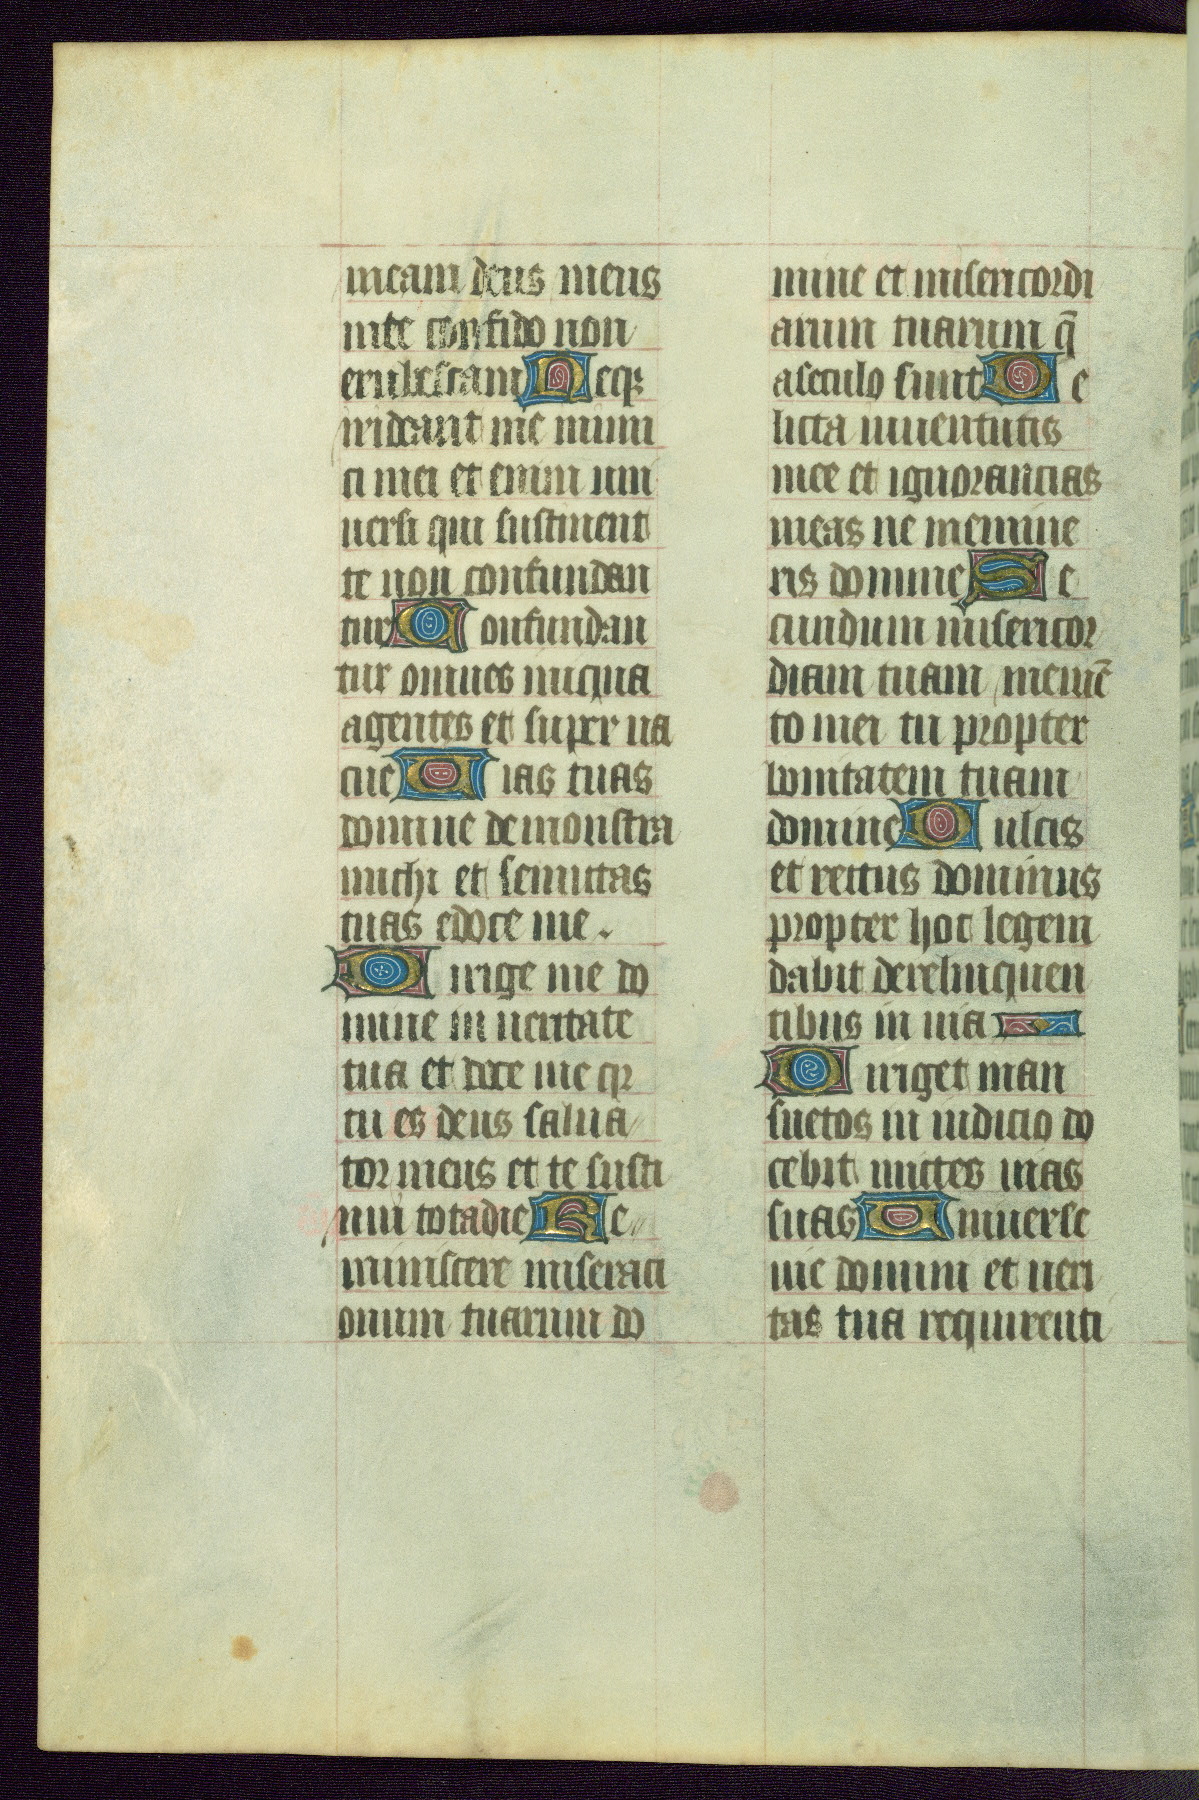 meam deus meus
in te confido non
erubescam Neqꝫ
irrideant me inimi
ci mei et enim uni
uersi qui sustinent
te non confundan
tur Confundan
tur omnes iniqua
agentes et super ua
cue Uias tuas
domine demonstra
michi et semittas
tuas edoce me.
Dirige me do
mine in ueritate
tua et doce me qꝛ
tu es deus salua
tor meus et te susti
nui tota die Re
miniscere miseraci
onum tuarum do
mine et misericordi
arum tuarum q̄
a seculo sunt De
licta iuuentutis
mee et ignorancias
meas ne memine
ris domine Se
cundum misericor
diam tuam memē
to mei tu propter
bonitatem tuam
domine Dulcis
et rectus dominus
propter hoc legem
dabit derelinquen
tibus in uia
Diriget man
suetos in iudicio do
cebit mittes uias
suas Uniuerse
uie domini et ueri
tas tua requirenti